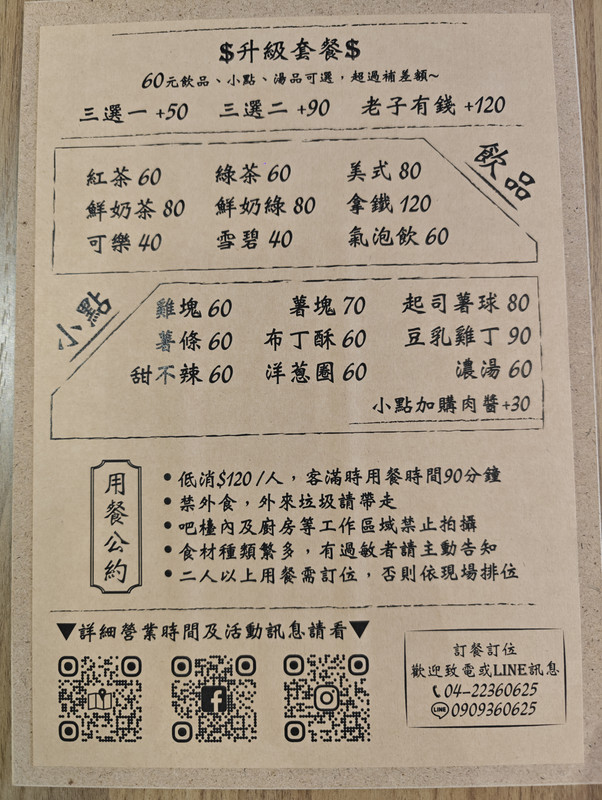 $升級套餐$
60元飲品、小點、湯品可選，超過補差額~
三選一 +50 三選二 +90 老子有錢 +120
飲品
紅茶 60 綠茶 60 美式 80
鮮奶茶 80 鮮奶綠 80 拿鐵 120
可樂 40 雪碧 40 氣泡飲 60
小點
雞塊 60 薯塊 70 起司薯球 80
薯條 60 布丁酥 60 豆乳雞丁 90
甜不辣 60 洋蔥圈 60 濃湯 60
小點加購肉醬+30
用餐公約
•低消$120 /人，客滿時用餐時間90分鐘
•禁外食，外來垃圾請帶走
•吧檯內及廚房等工作區域禁止拍攝
•食材種類繁多，有過敏者請主動告知
•二人以上用餐需訂位，否則依現場排位
▼詳細營業時間及活動訊息請看▼
訂餐訂位
歡迎致電或LINE訊息
04-22360625
LINE 0909360625